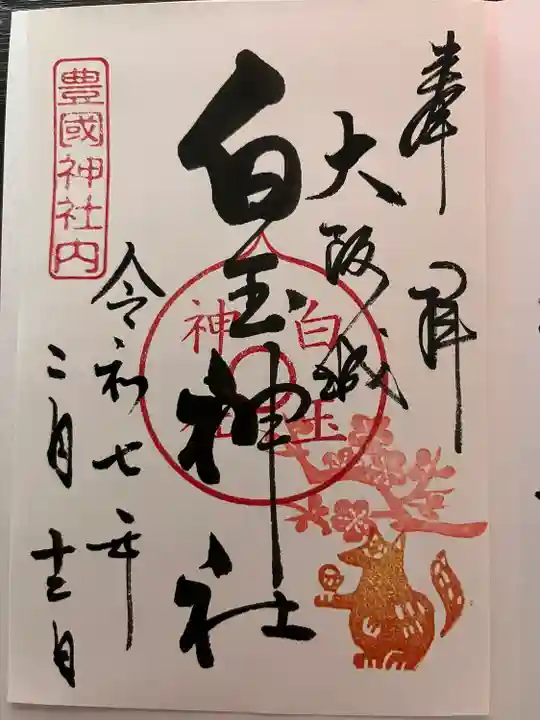 奉拝
大阪城
白玉神社
白玉
神社
令和七年
二月十二日
豊國神社内